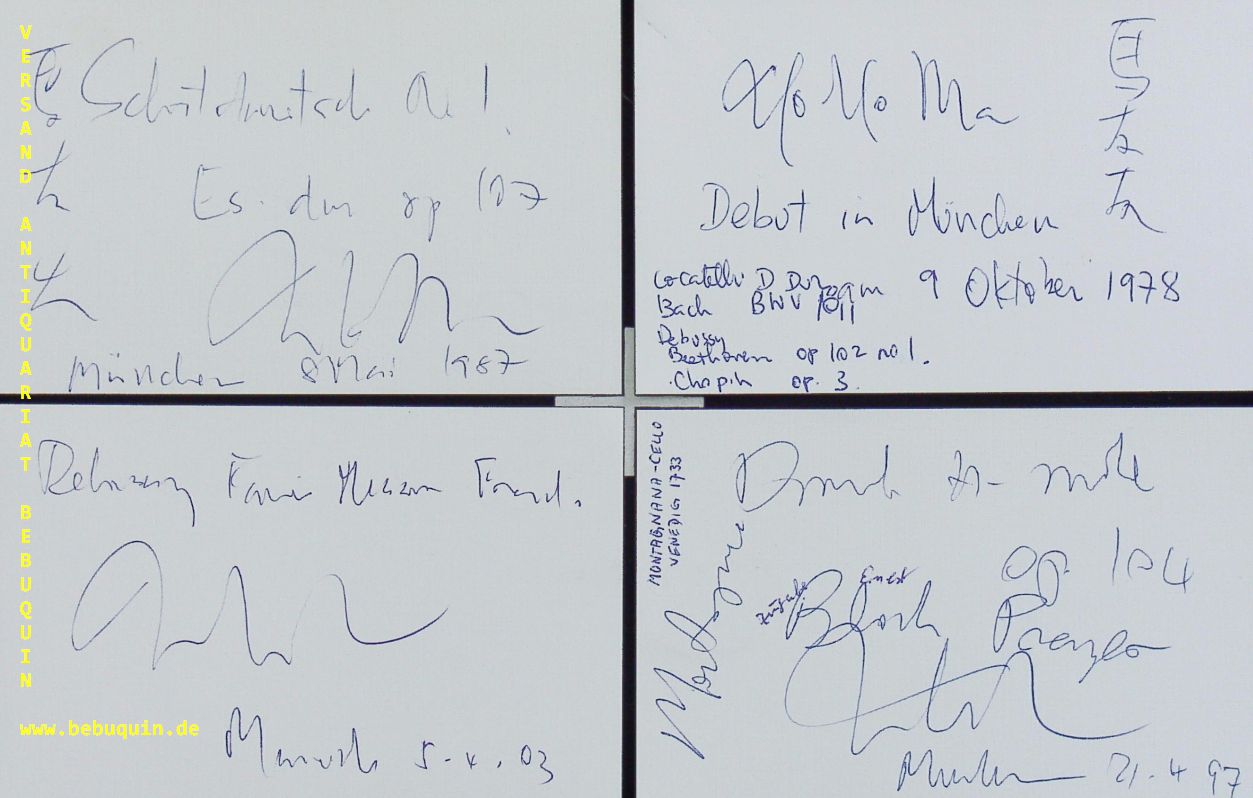 VERSAND ANTIQUARIAT BEBUQUIN
www.bebuquin.de
馬友友
Es. dur op 107
München 8 Mai 1987
Yo Yo Ma
馬友友
Debut in München
9 Oktober 1978
Locatelli D Dur
Bach BWV 1011
Debussy
Beethoven op 102 no 1.
Chopin op. 3.
Debussy Fauré Messiaen Franck.
5.4.03
MONTAGNANA-CELLO
VENEDIG 1733
Montagnana
Dvorak h-moll
op. 104
Zugabe
Ernest
Bloch Prayer
21.4 97